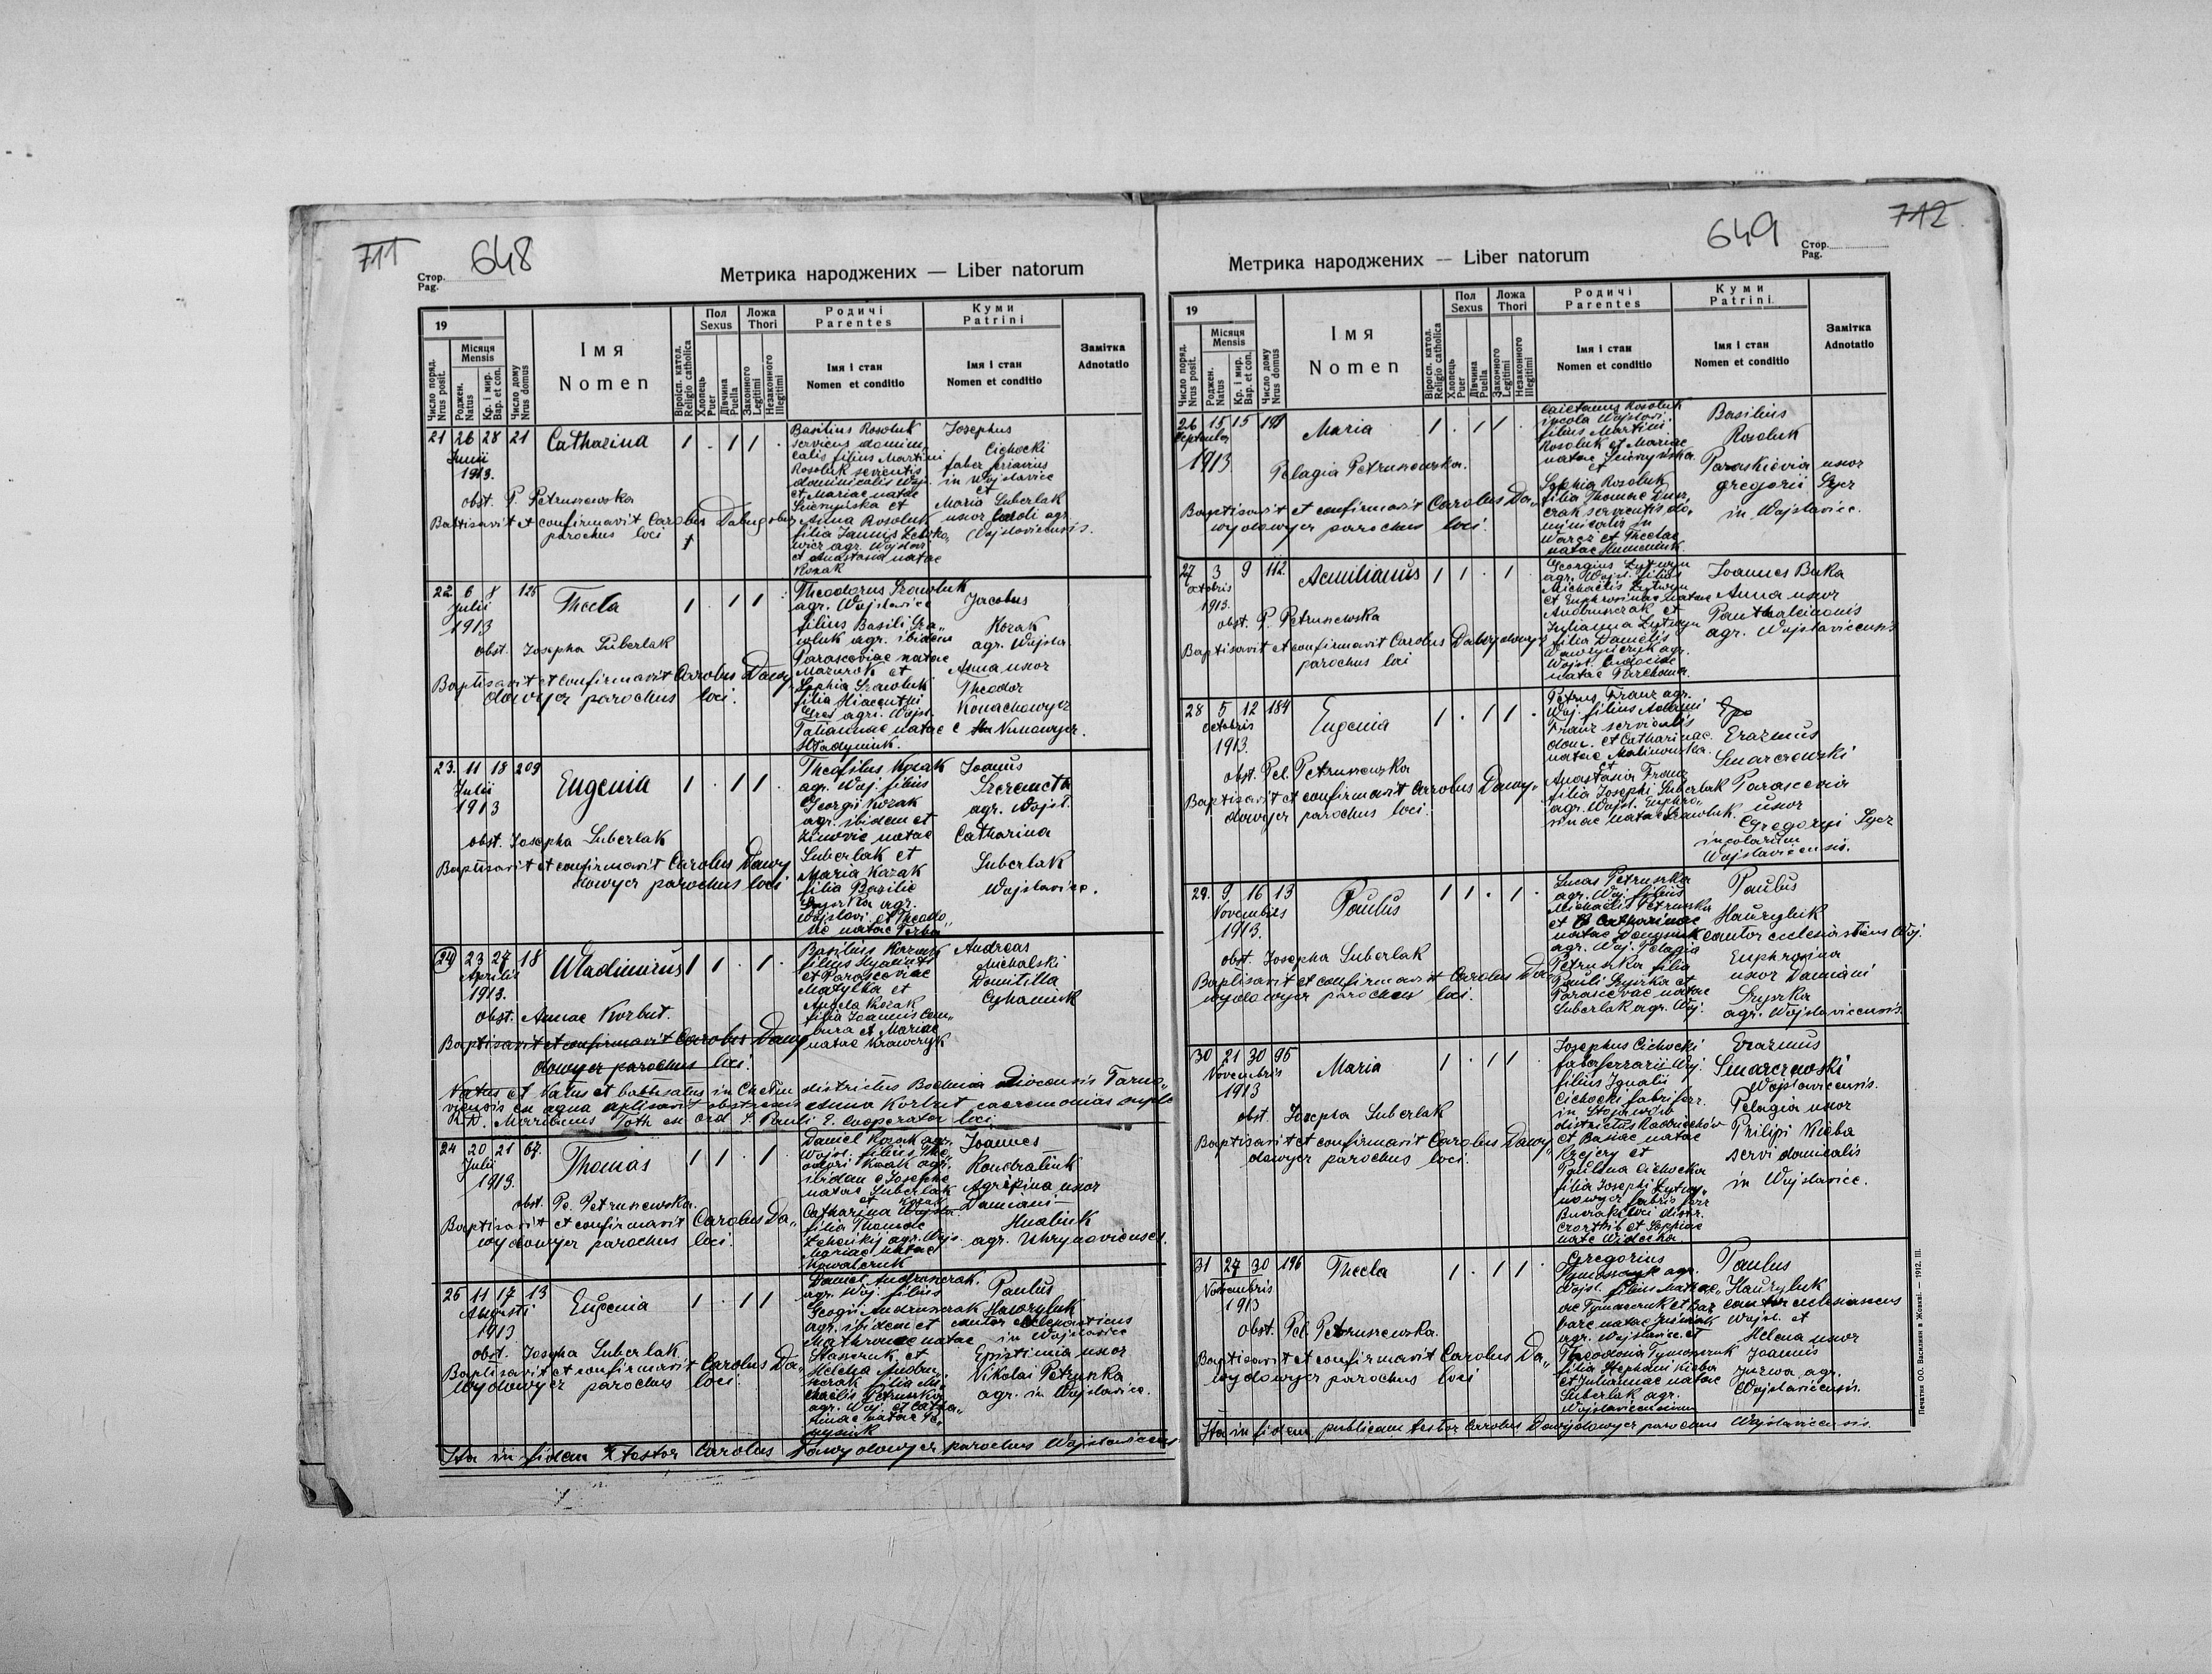 711
648
Стор.
Pag.
Метрика народжених — Liber natorum
19
Число поряд.
Nrus posit.
Місяця
Mensis
Роджен.
Natus
Кр. і мир.
Bap. et con.
Число дому
Nrus domus
Імя
Nomen
Віроісп. катол.
Religio catholica
Пол
Sexus
Хлопець
Puer
Дівчина
Puella
Ложа
Thori
Законного
Legitimi
Незаконного
Illegitimi
Родичі
Parentes
Імя і стан
Nomen et conditio
Куми
Patrini
Імя і стан
Nomen et conditio
Замітка
Adnotatio
21 26 28 21 Catharina 1 . 1 1 .
Junii
1913.
obst. P. Petruszewska
Baptisavit et confirmavit Carolus
parochus loci
Basilius Rosoluk
servicus domini
calis filius Martini
Rosoluk servientis
dominicalis Woj.
et Mariae natae
et
Anna Rosoluk
filia Joannis
agr. Wojslav
et Anastasia natae
Kozak
Josephus
Cichocki
faber ferrarius
in Wojslavice
et
Maria Suberlak
uxor Caroli agr.
Wojslaviccensis.
22 6 8 125 Thecla 1 . 1 1 .
Julii
1913
obst. Josepha Suberlak
Baptisavit et confirmavit Carolus Dawy
dowycz parochus loci.
Theodorus Szawluk
agr. Wojslavice
filius Basili Sza„
wluk agr. ibidem
Parascoviae natae
Mazurok et
Sophia Szawluk
filia Hiacenthi
agri. Wojsl.
Tatiannae natae
Wladyniuk.
Jacobus
Kozak
agr. Wojsla.
Anna uxor
Theodor
23. 11 18 209 Eugenia 1 . 1 1 .
Julii
1913
obst. Josepha Suberlak
Baptisavit et confirmavit Carolus Dawy
dowycz parochus loci
Theofilus Kozak
agr. Woj. filius
Georgii Kozak
agr. ibidem et
natae
Suberlak et
Maria Kozak
filia Basilie
agr.
Wojslavi. et Theodo„
natae
Joanus
Szeremeta
agr. Wojsl.
Catharina
Suberlak
Wojslavice.
24 23 27 18 Wladimirus 1 1 . 1 .
Aprilis
1913.
obst. Annae Korbut.
Baptisavit et confirmavit Carolus Dawy
dowycz parochus loci.
Basilius Kozak
filius Hyacinti
et Parasceviae
Matylka et
Angela Kozak
filia Joannis Cem„
bura et Mariae
natae Krawczyk
Andreas
Michalski
Domitilla
Natus et Natus et batisatus in Chełm districtus Bochnia Diocensis Tarno„
viensis ex aqua aplisavit obstetrix Anna Korbut caeremonias suple
R. D. Toth ex ord. S. Pauli E. Cooperator loci
24 20 21 67. Thomas 1 1 . 1 .
Julii
1913.
obst. Pe. Petruszewska.
Baptisavit et confirmavit Carolus Da„
wydowycz parochus loci.
Daniel Kozak agr.
Wojsl. filius The„
odori Kozak agr.
ibidem e Josepha
natae Suberlak
et Kozak
Catharina
filia Thomae
agr. Wojs.
Mariae natae
Kowalczuk
Joannes
Kondratiuk
Agripina uxor
Damiani
Hnatiuk
agr. Uhrynoviensis.
25 11 17 13 Eugenia 1 . 1 1
Augusti
1913
obst. Josepha Suberlak
Baptisavit et confirmavit Carolus Da„
wydowycz parochus loci.
Daniel Andruszczak.
agr. Woj. filius
Georgii Andruszczak
agr. ibidem et
Mathronae natae
Staszczuk et
Helena Andru„
szczak filia Mi„
chaelis Petruszka
agr. Woj. et Catha„
rinae natae
Paulus
Hawryluk
cantor eclesiasticus
in Wojslavice
Epistimia uxor
Nikolai Petruszka
agr. in Wojslavice.
Ita in fidem testor Carolus Dawydowycz parochus Wojslaviccensis
649
712
Стор.
Pag.
Метрика народжених — Liber natorum
19
Число поряд.
Nrus posit.
Місяця
Mensis
Роджен.
Natus
Кр. і мир.
Bap. et con.
Число дому
Nrus domus
Імя
Nomen
Віроісп. катол.
Religio catholica
Пол
Sexus
Хлопець
Puer
Дівчина
Puella
Ложа
Thori
Законного
Legitimi
Незаконного
Illegitimi
Родичі
Parentes
Імя і стан
Nomen et conditio
Куми
Patrini
Імя і стан
Nomen et conditio
Замітка
Adnotatio
26 15 15 Maria 1 . 1 1 .
September
1913
Pelagia Petruszewska.
Baptisavit et confirmavit Carolus Da„
wydowycz parochus loci.
Caietanus Rosoluk
incola Wojslavi.
filius Martini
Rosoluk et Mariae
natae
et
Sophia Rosoluk
filia Thomae
servientis do„
minicalis in
Waręz et Theclae
natae Humeniuk.
Basilius
Rosoluk
Paraskievia uxor
Gregorii Sycz
in Wojslavice.
27 3 9 112. Aemilianus 1 1 . 1 .
Octobris
1913.
obst. P. Petruszewska
Baptisavit et confirmavit Carolus Dawydowycz
parochus loci
Georgius Lytwyn
agr. Wojsl. filius
Michaelis Lytwyn
et Euphrosinae natae
Andruszczak et
Julianna Lytwyn
filia Danielis
agr.
Wojsl.
natae
Joannes Buka
Anna uxor
Panthaleimonis
agr. Wojslaviccensis
28 5 12 184 Eugenia 1 . 1 1 .
Octobris
1913.
obst. Pel. Petruszewska
Baptisavit et confirmavit Carolus Dawy„
dowycz parochus loci.
Petrus Franz agr.
Woj. filius Adami
Franz servientis
dom. et Catharinae
natae Malinowska.
et
Anastasia Franz
filia Josephi Suberlak
agr. Wojsl. Euphro„
sinae natae Szawluk.
Erazmus
Smarczewski
Parascevia
uxor
Gregoryi Sycz
incolarum
Wojslaviccensis.
29. 9 16 13 Paulus 1 1 . 1 .
Novembris
1913.
obst. Josepha Suberlak
Baptisavit et confirmavit Carolus Da„
wydowycz parochus loci.
Lucas Petruszka
agr. Woj. filius
Michaelis Petruszka
et Catharinae
natae
agr. Woj. Pelagia
Petruszka filia
Pauli Szyszka et
Parascevae natae
Suberlak agr. Woj.
Paulus
Hauryluk
cantor eclesiasticus Woj.
Euphrosina
uxor Damiani
Szyszka
agr. Wojslaviccensis.
30 21 30 95 Maria 1 . 1 1 .
Novembris
1913
obst. Josepha Suberlak
Baptisavit et confirmavit Carolus Dawy„
dowycz parochus loci.
Josephus Cichocki
faber ferrarii Woj.
filius Ignatii
Cichocki fabri ferr.
in Stojanów
districtus Radziechów
et Basiae natae
Krejczy et
Paulina Cichocka
filia Josephi Lytwy„
nowycz fabris ferr
loci distr.
et Sophiae
nate Widecka.
Erazmus
Smarczewski
Wojslaviccensis.
Pelagia uxor
Philipi Kicba
servi dominalis
in Wojslavice.
31 27 30 196 Thecla 1 . 1 1 .
Novembris
1913
obst. Pel. Petruszewska.
Baptisavit et confirmavit Carolus Da„
wydowycz parochus loci
Gregorius
Tymoszczuk agr.
Wojsl. filius
Tymoszczuk et Bar„
bare natae
agr. Wojslavice. et
Theodosia Tymoszczuk
filia Stephani Kicba
et Juliannae natae
Suberlak agr.
Wojslaviccensium
Paulus
Hauryluk
cantor eclesiasticus
Wojsl. et
Helena uxor
Joannis
Jurwa agr.
Wojslaviccensis.
Ita in fidem publicam testor Carolus Dawydowycz parochus Wojslaviccensis.
Печатня ОО. Василиян в Жовкві. — 1912. III.